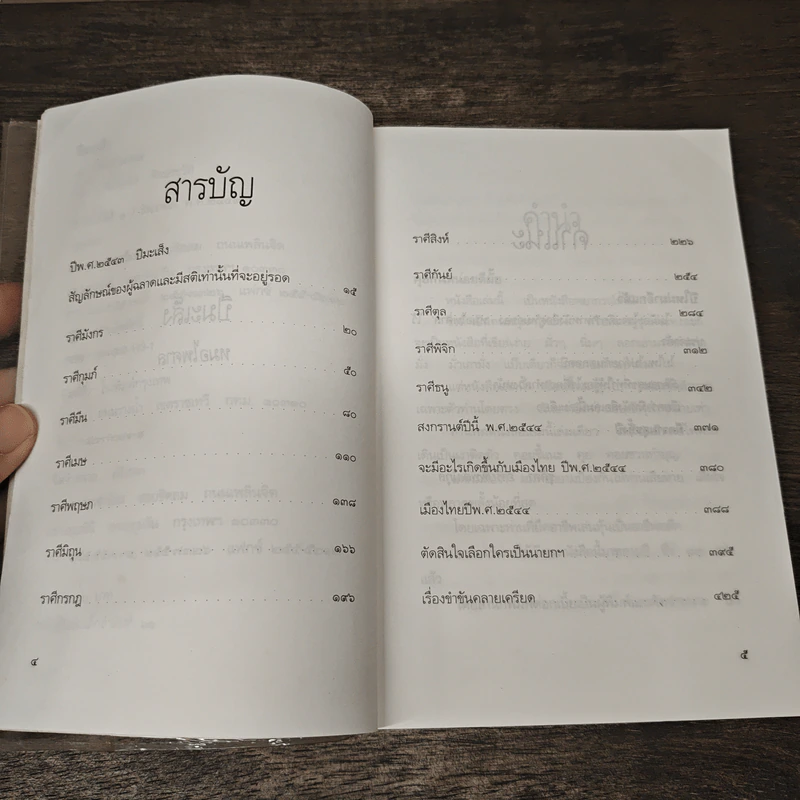 สารบัญ
ปีพ.ศ.๒๕๔๓ ปีมะเส็ง
สัญลักษณ์ของผู้ฉลาดและมีสติเท่านั้นที่จะอยู่รอด ๑๕
ราศีมังกร ๒๐
ราศีกุมภ์ ๕๐
ราศีมีน ๘๐
ราศีเมษ ๑๑๐
ราศีพฤษภ ๑๓๘
ราศีมิถุน ๑๖๖
ราศีกรกฎ ๑๙๖
๔
ราศีสิงห์ ๒๒๖
ราศีกันย์ ๒๕๔
ราศีตุล ๒๘๔
ราศีพิจิก ๓๑๒
ราศีธนู ๓๔๒
สงกรานต์ปีนี้ พ.ศ.๒๕๔๔ ๓๗๑
จะมีอะไรเกิดขึ้นกับเมืองไทย ปีพ.ศ.๒๕๔๔ ๓๘๐
เมืองไทยปีพ.ศ.๒๕๔๔ ๓๘๘
ตัดสินใจเลือกใครเป็นนายกฯ ๓๙๕
เรื่องขำขันคลายเครียด ๔๒๕
๕